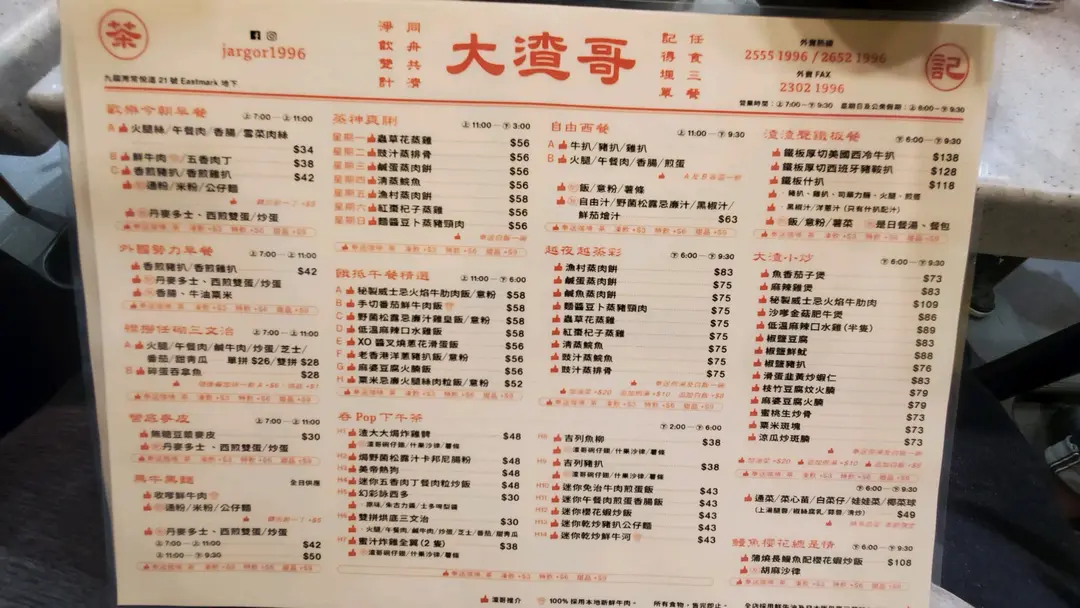 茶
jargor1996
九龍灣常悅道 21 號 Eastmark 地下
淨飲雙計
同舟共濟
大渣哥
記得埋單
任食三餐
外賣熱線
2555 1996 / 2652 1996
外賣 FAX
2302 1996
記
營業時間：㊤ 7:00—㊦ 9:30 星期日及公眾假期：㊤ 8:00—㊦ 9:30
歡樂今朝早餐 ㊤ 7:00—㊤ 11:00
A 火腿絲/午餐肉/香腸/雪菜肉絲
$34
B 鮮牛肉/五香肉丁 $38
C 香煎豬扒/香煎雞扒 $42
通粉/米粉/公仔麵
丹麥多士、西煎雙蛋/炒蛋
外國勢力早餐 ㊤ 7:00—㊤ 11:00
香煎豬扒/香煎雞扒 $42
丹麥多士、西煎雙蛋/炒蛋
香腸、牛油粟米
三文治 ㊤ 7:00—㊤ 11:00
A 火腿/午餐肉/鹹牛肉/炒蛋/芝士/
番茄/甜青瓜 單拼 $26/雙拼 $28
B 碎蛋吞拿魚 $28
麥皮 ㊤ 7:00—㊤ 11:00
無糖豆漿麥皮 $30
丹麥多士、西煎雙蛋/炒蛋
全日供應
鮮牛肉
通粉/米粉/公仔麵
丹麥多士、西煎雙蛋/炒蛋
㊤ 7:00—㊤ 11:00 $42
㊤ 11:00—㊦ 9:30 $50
蒸神爽脷 ㊤ 11:00—㊦ 3:00
星期一 蟲草花蒸雞 $56
星期二 豉汁蒸排骨 $56
星期三 鹹蛋蒸肉餅 $56
星期四 清蒸鯇魚 $56
星期五 漁村蒸肉餅 $58
星期六 紅棗杞子蒸雞 $56
星期日 麵醬豆卜蒸豬頸肉 $56
餓抵午餐精選 ㊤ 11:00—㊦ 6:00
A 秘製威士忌火焰牛肋肉飯/意粉 $58
B 手切番茄鮮牛肉飯 $58
C 野菌松露忌廉汁雞皇飯/意粉 $58
D 低溫麻辣口水雞飯 $58
E XO 醬叉燒蔥花滑蛋飯 $56
F 老香港洋蔥豬扒飯/意粉 $56
G 麻婆豆腐火腩飯 $56
H 粟米忌廉火腿絲肉粒飯/意粉 $52
吞 Pop 下午茶 ㊦ 2:00—㊦ 6:00
H1 渣大大焗炸雞髀 $48
渣哥碗仔翅/什果沙律/薯條
H2 焗野菌松露汁卡邦尼腸粉 $48
H3 美帝熱狗 $48
H4 迷你五香肉丁餐肉粒炒飯 $48
H5 幻彩詠西多 $30
原味/朱古力醬/士多啤梨醬
H6 雙拼烘底三文治 $30
火腿/午餐肉/鹹牛肉/炒蛋/芝士/番茄/甜青瓜
H7 蜜汁炸雞全翼(2 隻) $38
渣哥碗仔翅/什果沙律/薯條
H8 吉列魚柳 $38
渣哥碗仔翅/什果沙律/薯條
H9 吉列豬扒 $38
渣哥碗仔翅/什果沙律/薯條
H10 迷你免治牛肉煎蛋飯 $43
H11 迷你午餐肉煎蛋香腸飯 $43
H12 迷你櫻花蝦炒飯 $43
H13 迷你乾炒豬扒公仔麵 $43
H14 迷你乾炒鮮牛河 $43
自由西餐 ㊤ 11:00—㊦ 9:30
A 牛扒/豬扒/雞扒
B 火腿/午餐肉/香腸/煎蛋
飯/意粉/薯條
自由汁/野菌松露忌廉汁/黑椒汁/
鮮茄燴汁 $63
越夜越蒸彩 ㊦ 6:00—㊦ 9:30
漁村蒸肉餅 $83
鹹蛋蒸肉餅 $75
鹹魚蒸肉餅 $75
麵醬豆卜蒸豬頸肉 $75
蟲草花蒸雞 $75
紅棗杞子蒸雞 $75
清蒸鯇魚 $75
豉汁蒸鯇魚 $75
豉汁蒸排骨 $75
追加油菜 +$20 追加煎凍 +$10 追加白飯 +$8
渣渣聲鐵板餐 ㊦ 6:00—㊦ 9:30
鐵板厚切美國西冷牛扒 $138
鐵板厚切西班牙豬鞍扒 $128
鐵板什扒 $118
豬扒、雞扒、司華力腸、火腿、煎蛋
黑椒汁/洋蔥汁 (只有什扒配汁)
飯/意粉/薯菜 是日餐湯、餐包
大渣小炒 ㊦ 6:00—㊦ 9:30
魚香茄子煲 $73
麻辣雞煲 $83
秘製威士忌火焰牛肋肉 $109
沙嗲金菇肥牛煲 $86
低溫麻辣口水雞(半隻) $89
椒鹽豆腐 $83
椒鹽鮮魷 $88
椒鹽豬扒 $76
滑蛋韭黃炒蝦仁 $83
枝竹豆腐炆火腩 $79
麻婆豆腐火腩 $79
蜜桃生炒骨 $73
粟米斑塊 $73
涼瓜炒斑腩 $73
㊦ 6:00—㊦ 9:30
通菜/菜心苗/白菜仔/娃娃菜/椰菜球
(上湯腿蓉/椒絲腐乳/蒜蓉/清炒) $49
鰻魚櫻花總是情 ㊦ 6:00—㊦ 9:30
蒲燒長鰻魚配櫻花蝦炒飯 $108
胡麻沙律
渣哥推介 100% 採用本地新鮮牛肉。 所有食物，售完即止。